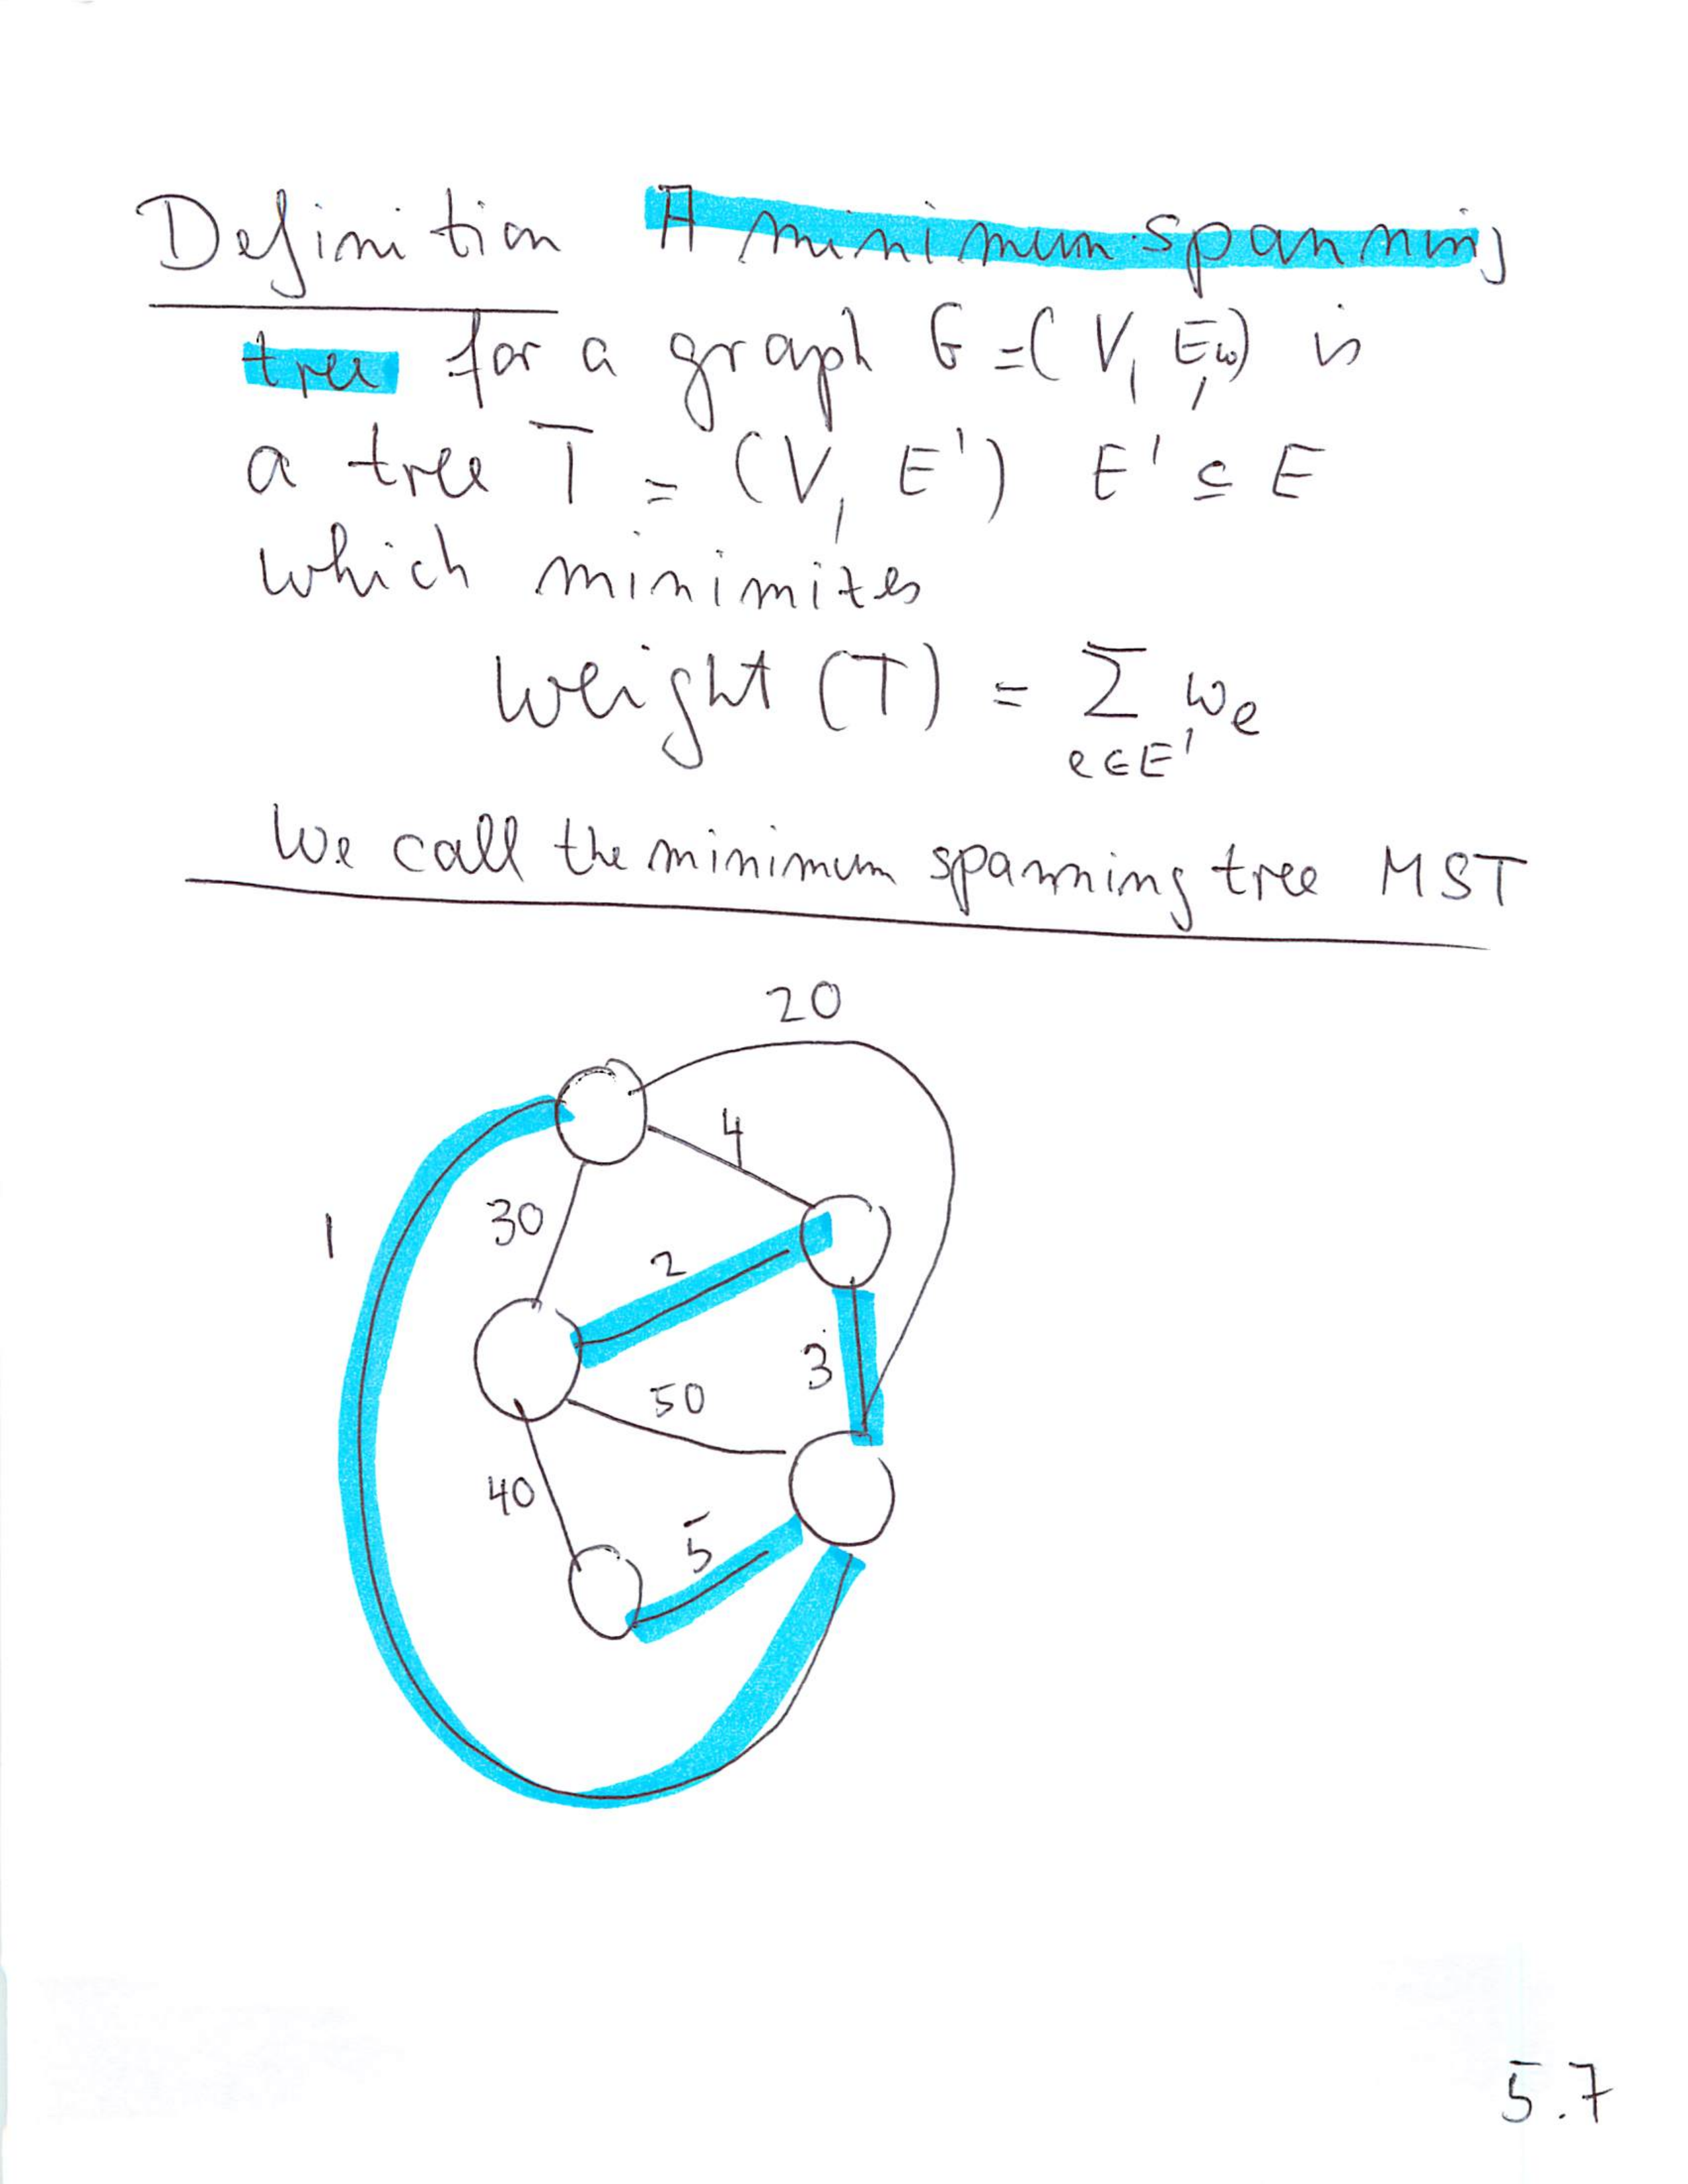 Definition A minimum spanning
tree for a graph G = (V, E, w) is
a tree T = (V, E') E' ⊆ E
which minimizes
weight (T) = Σ w_e
e∈E'
We call the minimum spanning tree MST
20
4
1
30
2
3
50
40
5
5.7